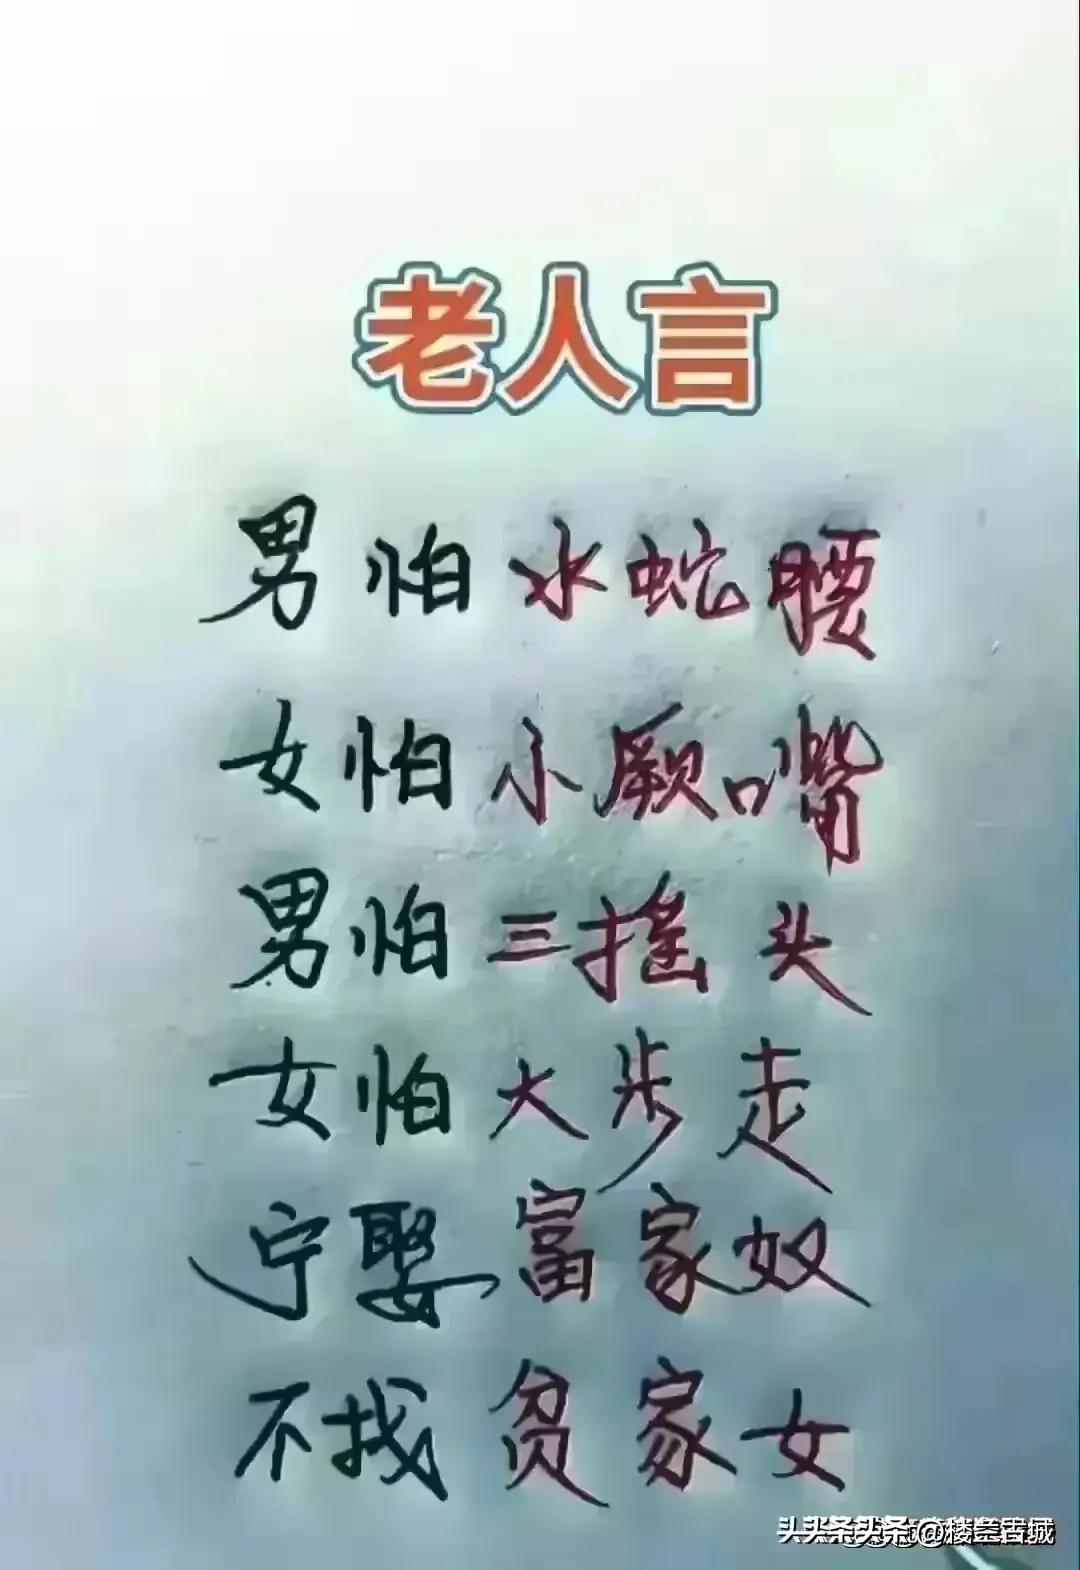 老人言
男怕水蛇腰
女怕小厥嘴
男怕三摇头
女怕大步走
宁娶富家奴
不找贫家女
头头条头条 @楼兰古城